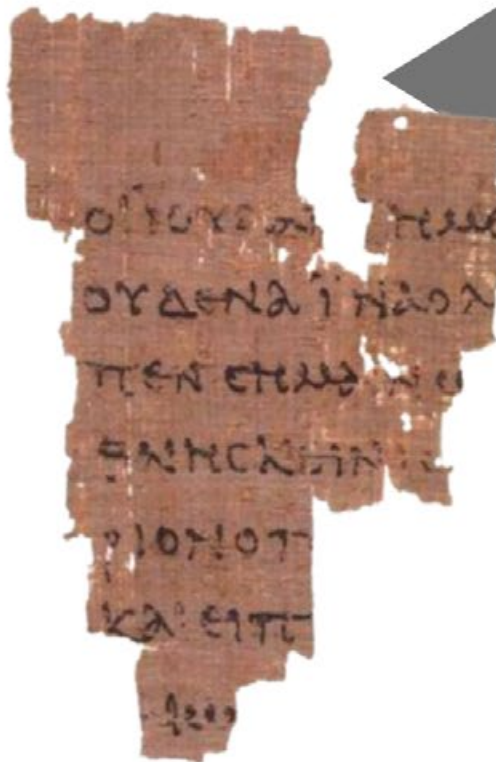 ΟΙ ΙΟΥΔΑΙ ΗΜ
ΟΥΔΕΝΑ ΪΝΑ Ο Λ
ΠΕΝ CΗΜΑΙΝΩ
ΘΝΗCΚΕΙΝ ΙC
ΡΙΟΝ Ο Π
ΚΑΙ ΕΙΠ